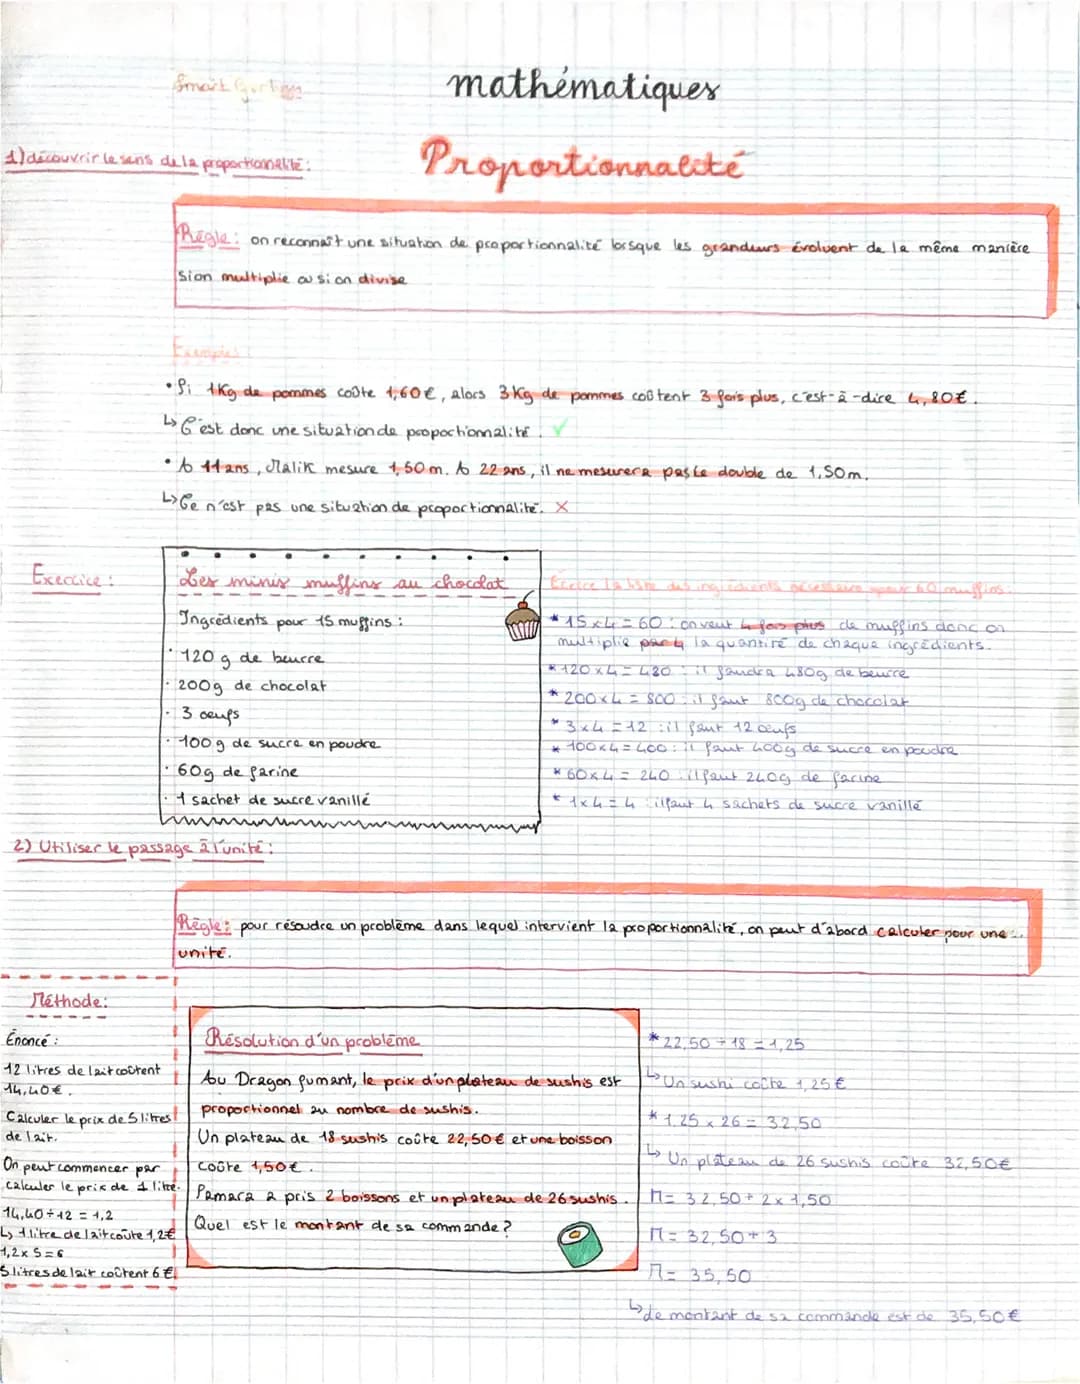 mathématiques
Proportionnalité
1) découvrir le sens de la proportionnalité :
Règle : on reconnaît une situation de proportionnalité lorsque les grandeurs évoluent de la même manière
si on multiplie ou si on divise
Exemples :
• Si 1Kg de pommes coûte 1,60€, alors 3Kg de pommes coûtent 3 fois plus, c'est-à-dire 4,80€.
↳ C'est donc une situation de proportionnalité. ✓
• A 11 ans, Malik mesure 1,50m. A 22 ans, il ne mesurera pas le double de 1,50m.
↳ Ce n'est pas une situation de proportionnalité. X
Exercice :
Les minis muffins au chocolat
Ingrédients pour 15 muffins :
· 120 g de beurre
· 200g de chocolat
· 3 oeufs
· 100 g de sucre en poudre
· 60g de farine
· 1 sachet de sucre vanillé
Écrire la liste des ingrédients nécessaire pour 60 muffins :
* 15 x 4 = 60 : on veut 4 fois plus de muffins donc on
multiplie par 4 la quantité de chaque ingrédients.
* 120 x 4 = 480 : il faudra 480g de beurre
* 200 x 4 = 800 : il faut 800g de chocolat
* 3 x 4 = 12 : il faut 12 oeufs
* 100 x 4 = 400 : il faut 400g de sucre en poudre
* 60 x 4 = 240 : il faut 240g de farine
* 1 x 4 = 4 : il faut 4 sachets de sucre vanillé
2) Utiliser le passage à l'unité :
Règle : pour résoudre un problème dans lequel intervient la proportionnalité, on peut d'abord calculer pour une
unité.
Méthode :
Énoncé :
12 litres de lait coûtent
14,40€.
Calculer le prix de 5 litres
de lait.
On peut commencer par
calculer le prix de 1 litre.
14,40 ÷ 12 = 1,2
↳ 1 litre de lait coûte 1,2€
1,2 x 5 = 6
5 litres de lait coûtent 6€.
Résolution d'un problème
Au Dragon fumant, le prix d'un plateau de sushis est
proportionnel au nombre de sushis.
Un plateau de 18 sushis coûte 22,50€ et une boisson
coûte 1,50€.
Pamara a pris 2 boissons et un plateau de 26 sushis.
Quel est le montant de sa commande ?
* 22,50 ÷ 18 = 1,25
↳ Un sushi coûte 1,25€
* 1,25 x 26 = 32,50
↳ Un plateau de 26 sushis coûte 32,50€
M = 32,50 + 2 x 1,50
M = 32,50 + 3
M = 35,50
↳ Le montant de sa commande est de 35,50€